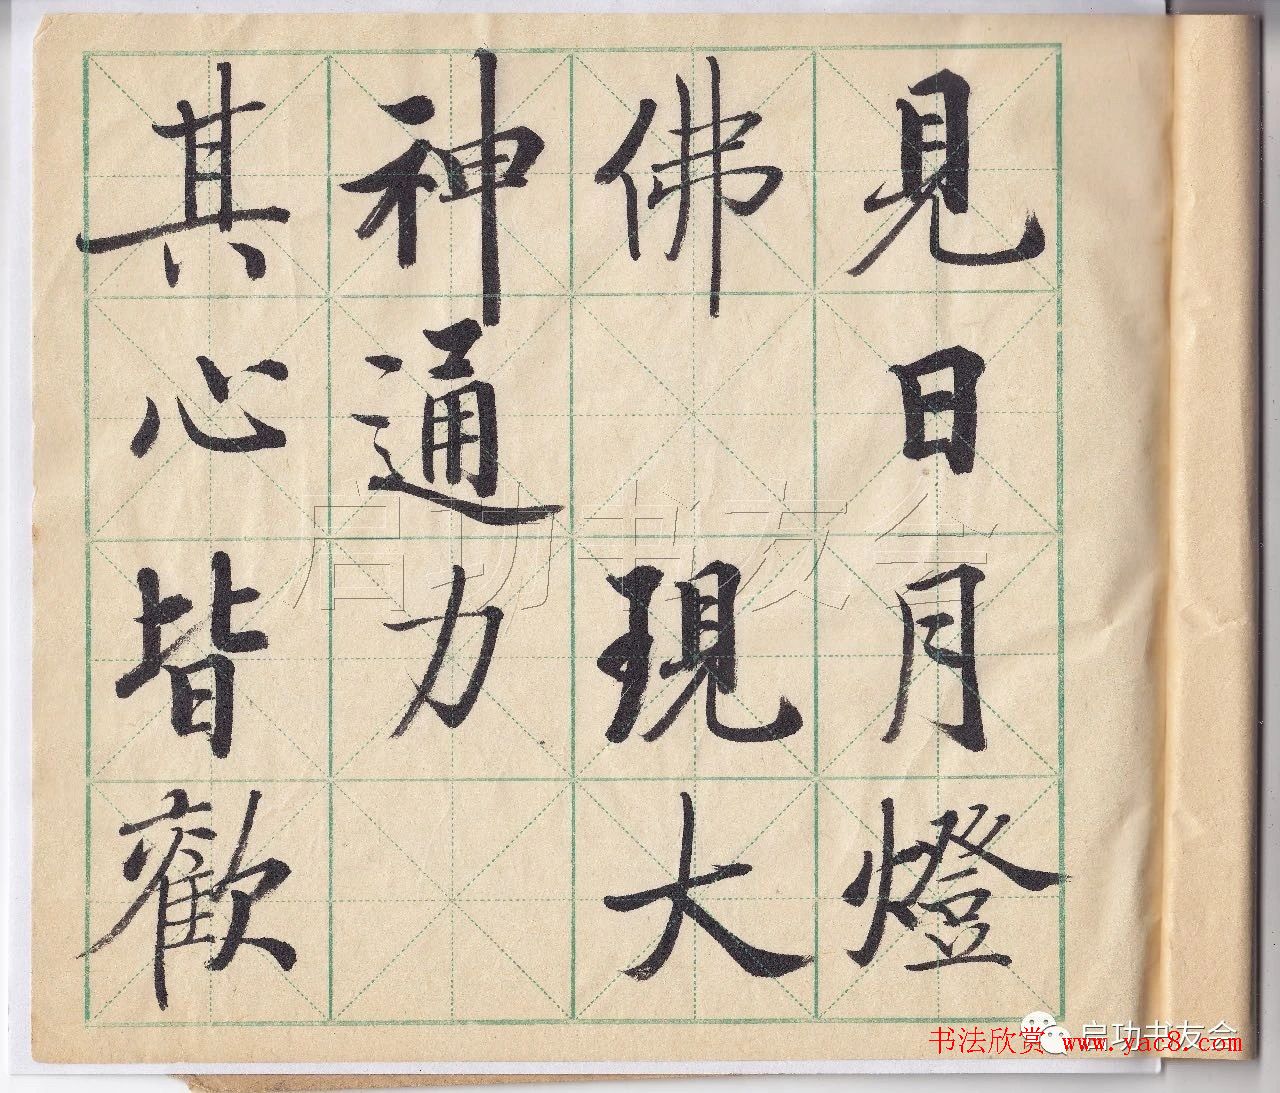 見日月燈
佛 現大
神通力
其心皆歡
启功书友会
书法欣赏 www.yac8.com
启功书友会